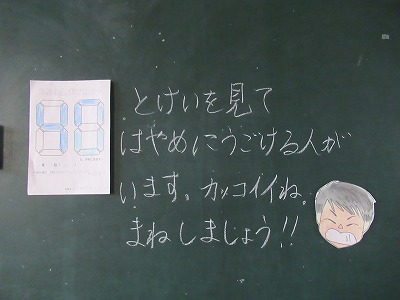 とけいを見て
はやめにうごける人が
います。カッコイイね。
まねしましょう!!